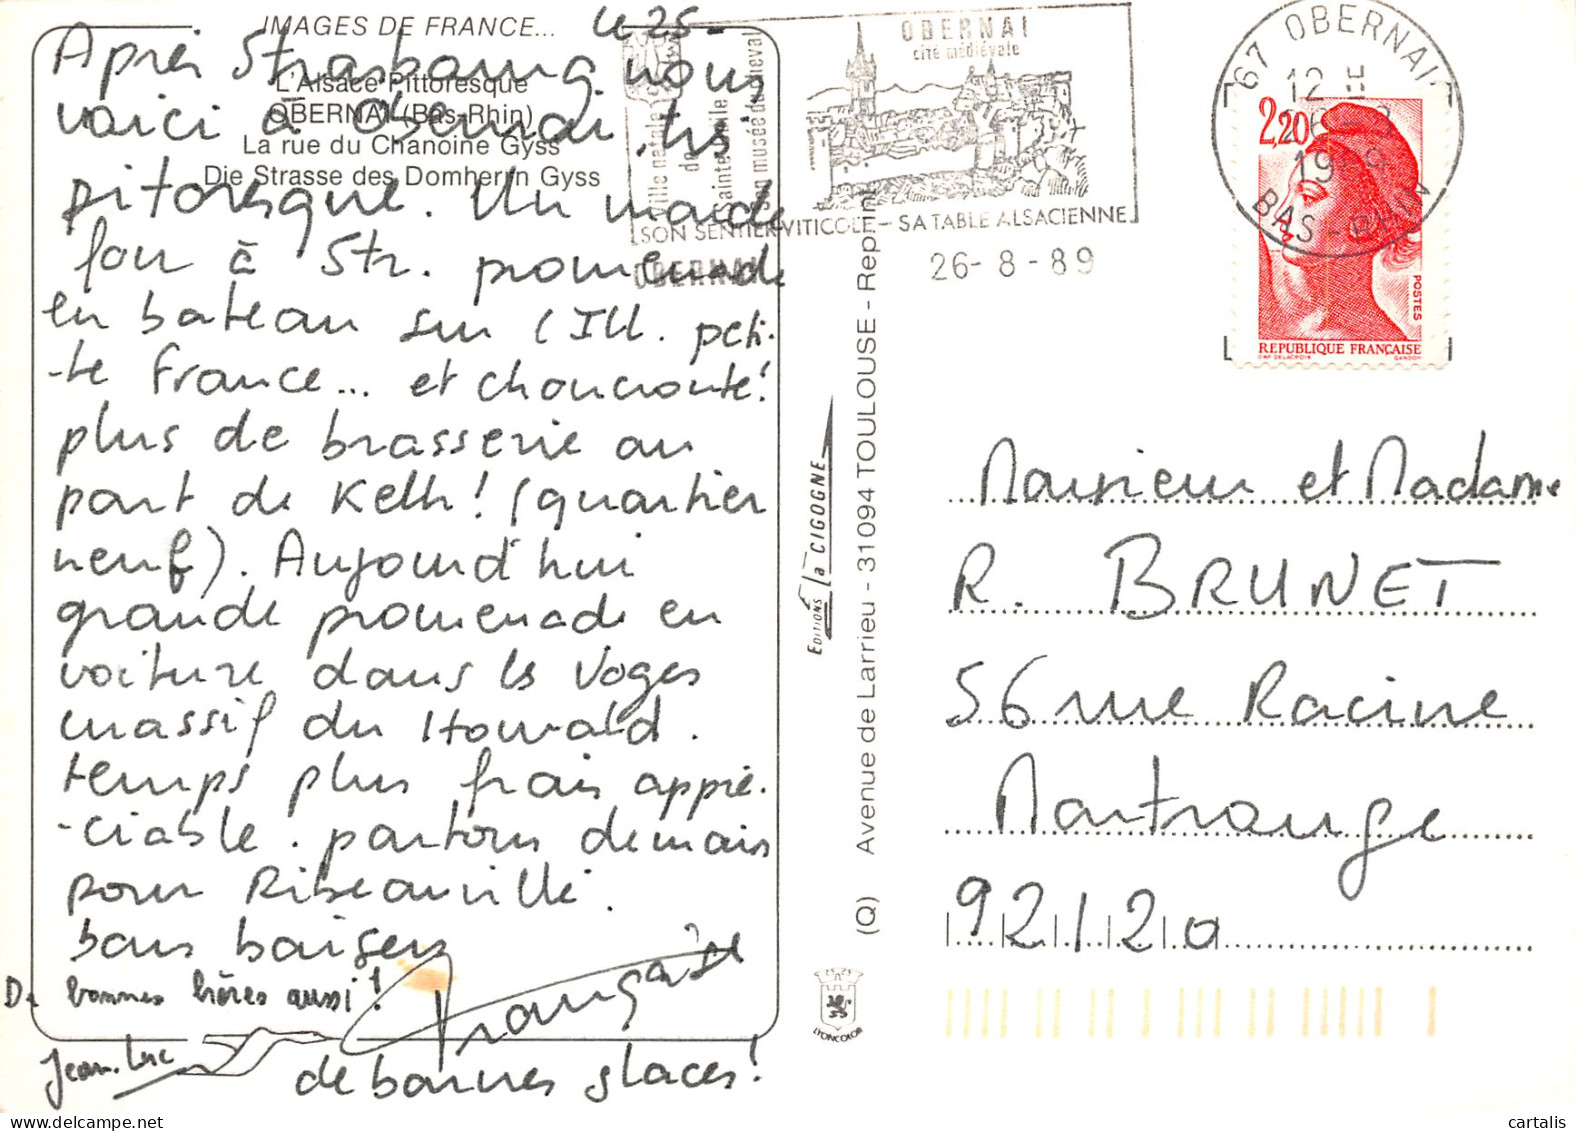 IMAGES DE FRANCE...
L'Alsace Pittoresque
OBERNAI (Bas-Rhin)
La rue du Chanoine Gyss
Die Strasse des Domherrn Gyss
le 25-
Après Strasbourg, nous
voici à Obernai, très
pitoresque. Un monde
fou à Str. promenade
en bateau sur l'Ill. peti-
-te France... et choucroute!
plus de brasserie au
pont de Kelh! (quartier
neuf). Aujourd'hui
grande promenade en
voiture dans les Voges
massif du Howald.
temps plus frais appré-
-ciable. partons demain
pour Ribeauvillé.
bons baisers
Françoise
De bonnes bières aussi!
Jean-Luc
de bonnes glaces!
Ville natale
de
Sainte Odile
Son musée médiéval
OBERNAI
cité médiévale
SON SENTIER VITICOLE - SA TABLE ALSACIENNE
OBERNAI
26-8-89
67 OBERNAI
12 H
1989
BAS-RHIN
2,20
POSTES
REPUBLIQUE FRANÇAISE
DAP DELACROIX
GANDON
EDITIONS la CIGOGNE
(Q) Avenue de Larrieu - 31094 TOULOUSE - Repr. int.
LYONCOLOR
Monsieur et Madame
R. BRUNET
56 rue Racine
Montrouge
92120
cartalis